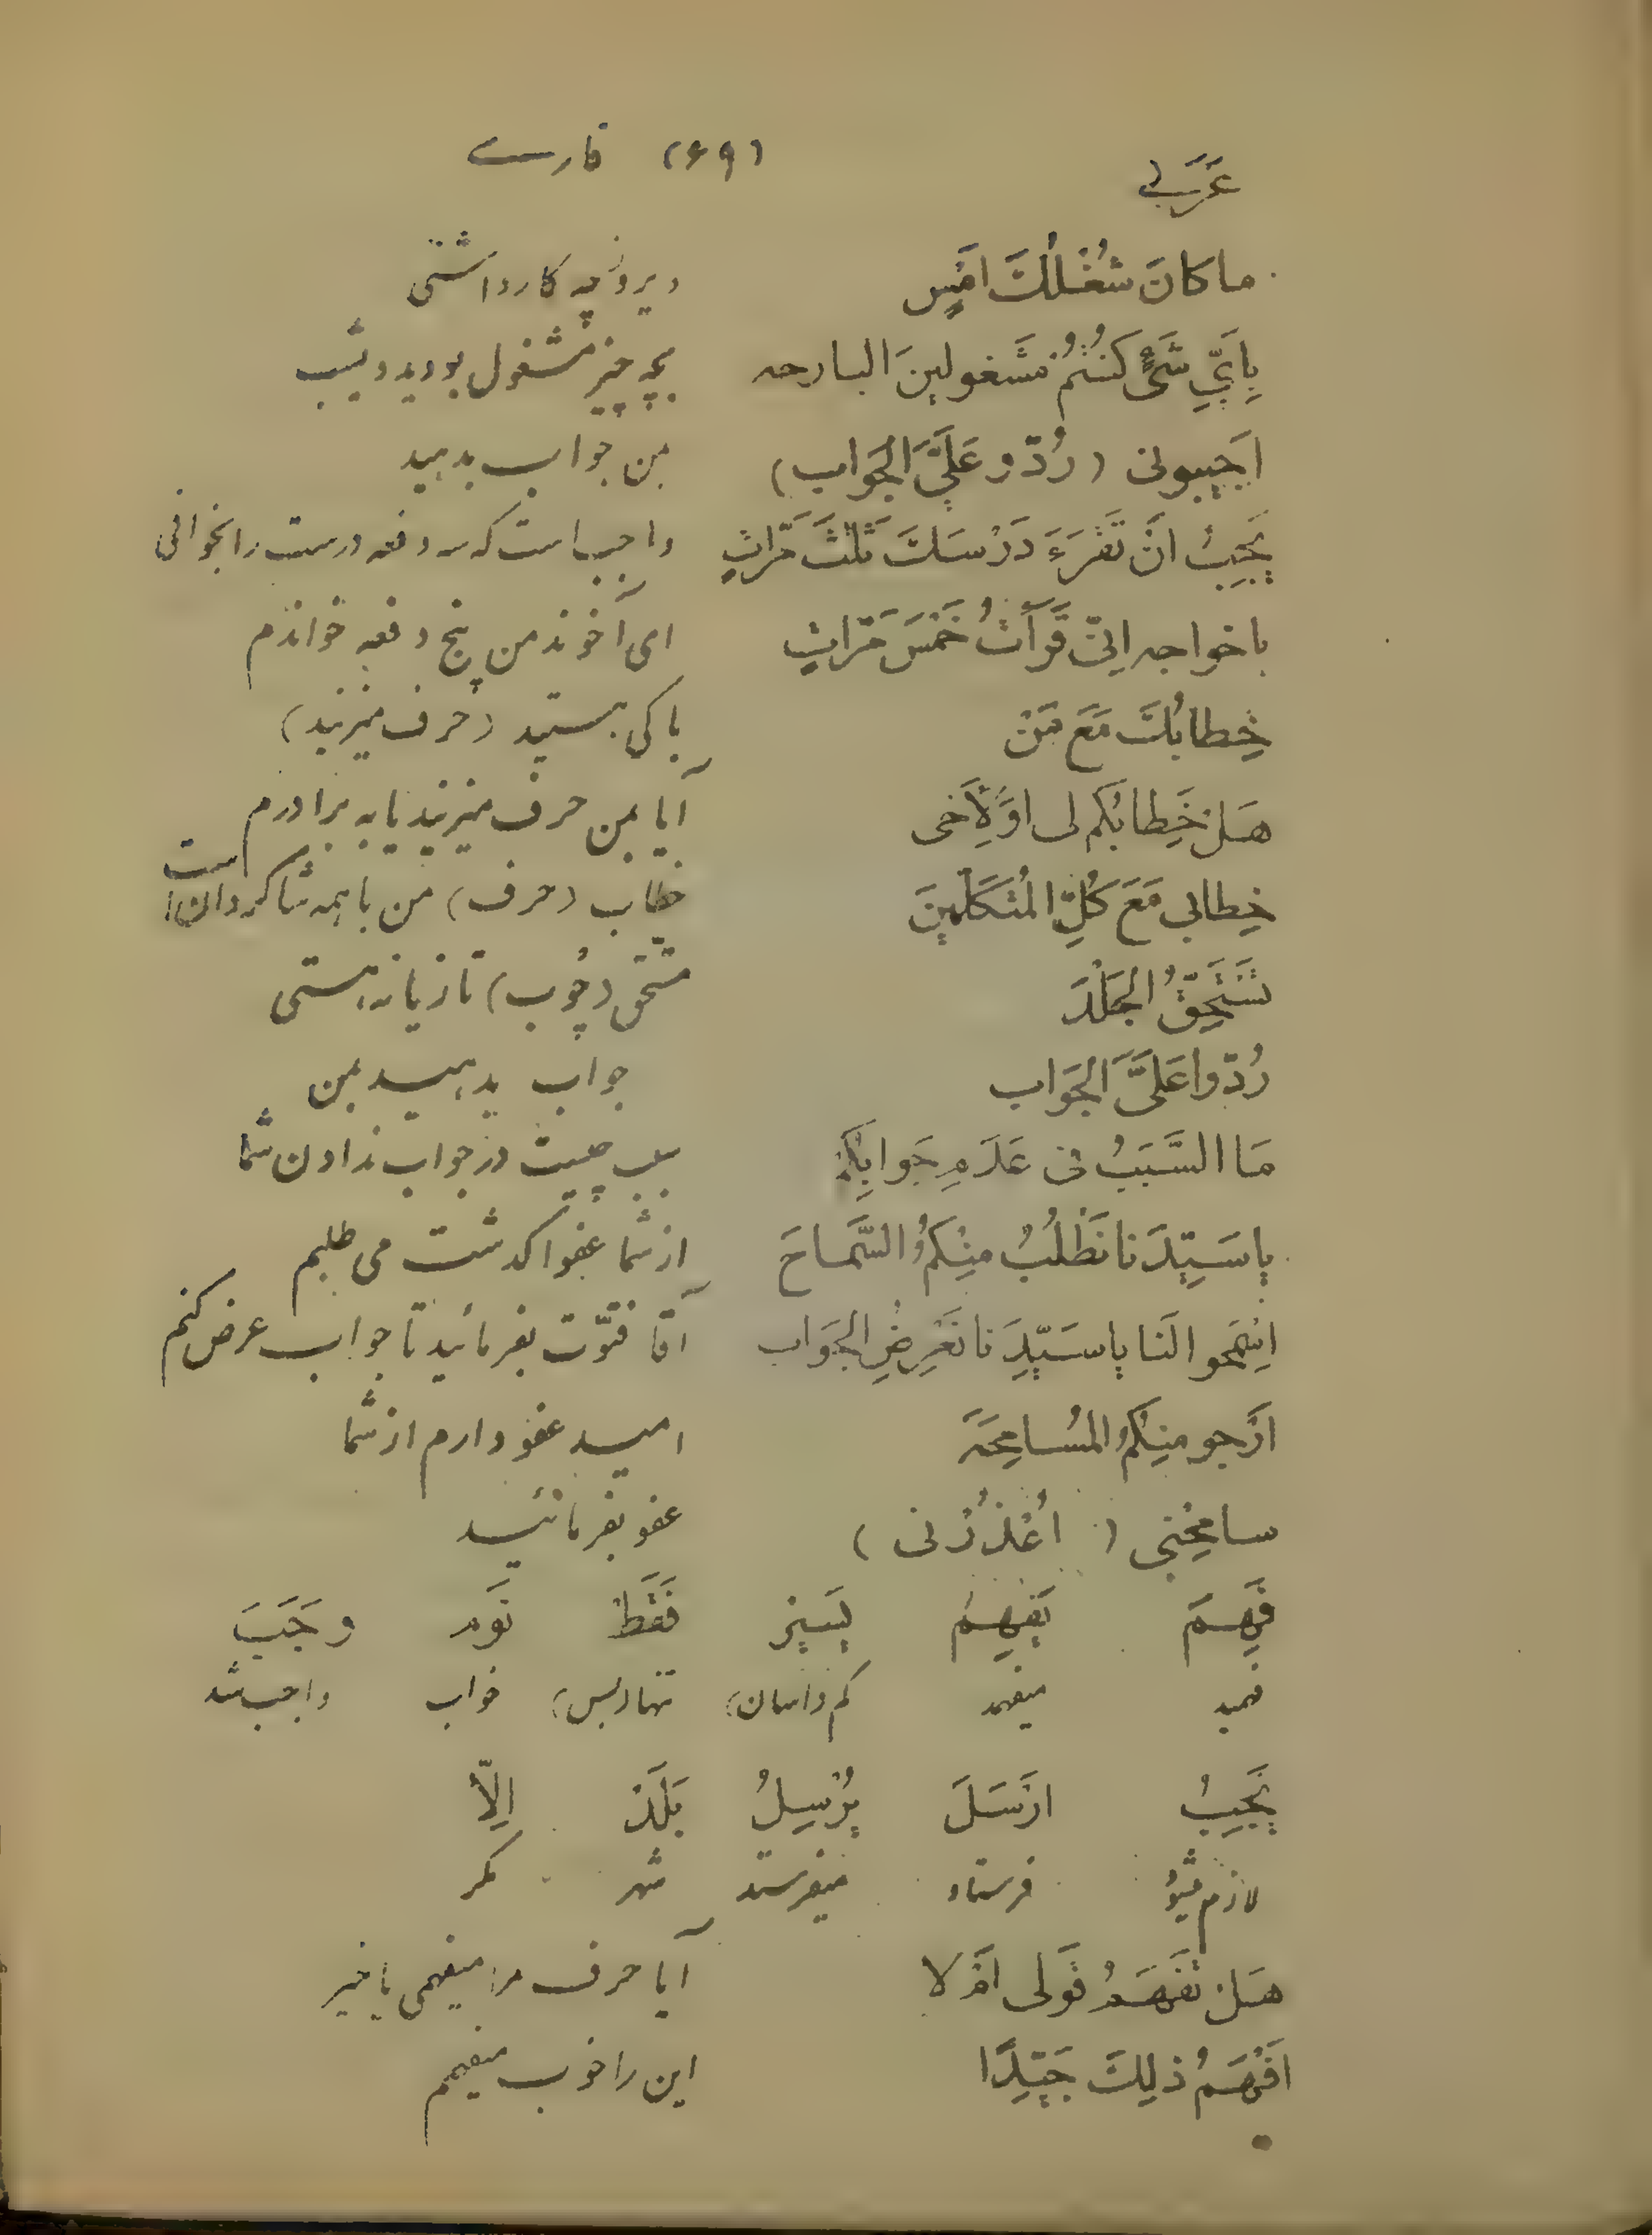 عَرَبي (۶۹) فارسے
ما كانَ شُغْلُكَ اَمْسِ ديروز چه كار داشتى
بِاَيِّ شَيْءٍ كُنْتُمْ مَشْغولينَ البارحه بچه چيز مشغول بوديد ديشب
اَجيبونى (رُدّو عَلَيَّ الجَواب) بمن جواب بدهيد
يَجِبُ اَنْ تَقْرَءَ دَرْسَكَ ثَلٰثَ مَرّاتٍ واجب است كه سه دفعه درست را بخوانى
ياخواجه اِنّى قَرَأتُ خَمْسَ مَرّاتٍ اى آخوند من پنج دفعه خواندم
خِطابُكَ مَعَ مَنْ با كى هستيد (حرف ميزنيد)
هَلْ خِطابُكم لى اوْ لِاَخى آيا بمن حرف ميزنيد يا به برادرم
خِطابى مَعَ كُلِّ المُتَكَلِّمينَ خطاب (حرف) من با همه شاگردان است
تَسْتَحِقُّ الجَلْدَ مستحق (چُوب) تازيانه هستى
رُدّوا عَلَيَّ الجَواب جواب بدهيد بمن
مَا السَّبَبُ فى عَدَمِ جَوابِكُمْ سبب چيست در جواب ندادن شما
يا سَيِّدَنا نَطْلُبُ مِنْكُمُ السَّماحَ از شما عفو اگذشت مى طلبم
اِسْمَحوا لَنا يا سَيِّدَنا نَعْرِضِ الجَواب آقا فتوّت بفرمائيد تا جواب عرض كنم
اَرْجو مِنْكُمُ المُسامِحَةَ اميد عفو دارم از شما
سامِحْنى (اُعْذُرْنى) عفو بفرمائيد
فَهِمَ يَفْهِمُ يَسيرْ فَقَطْ نَوم وَجَبَ
فهميد ميفهمد كم (اسان) تنها (بس) خواب واجب شد
يَجِبُ ارْسَلَ يُرْسِلُ بَلَدْ اِلّا
لازم ميشود فرستاد ميفرستد شهر مگر
هَلْ تَفْهَمُ قَولى اَمْ لا آيا حرف مرا ميفهمى يا خير
اَفْهَمُ ذلِكَ جَيِّدًا اين را خوب ميفهمم